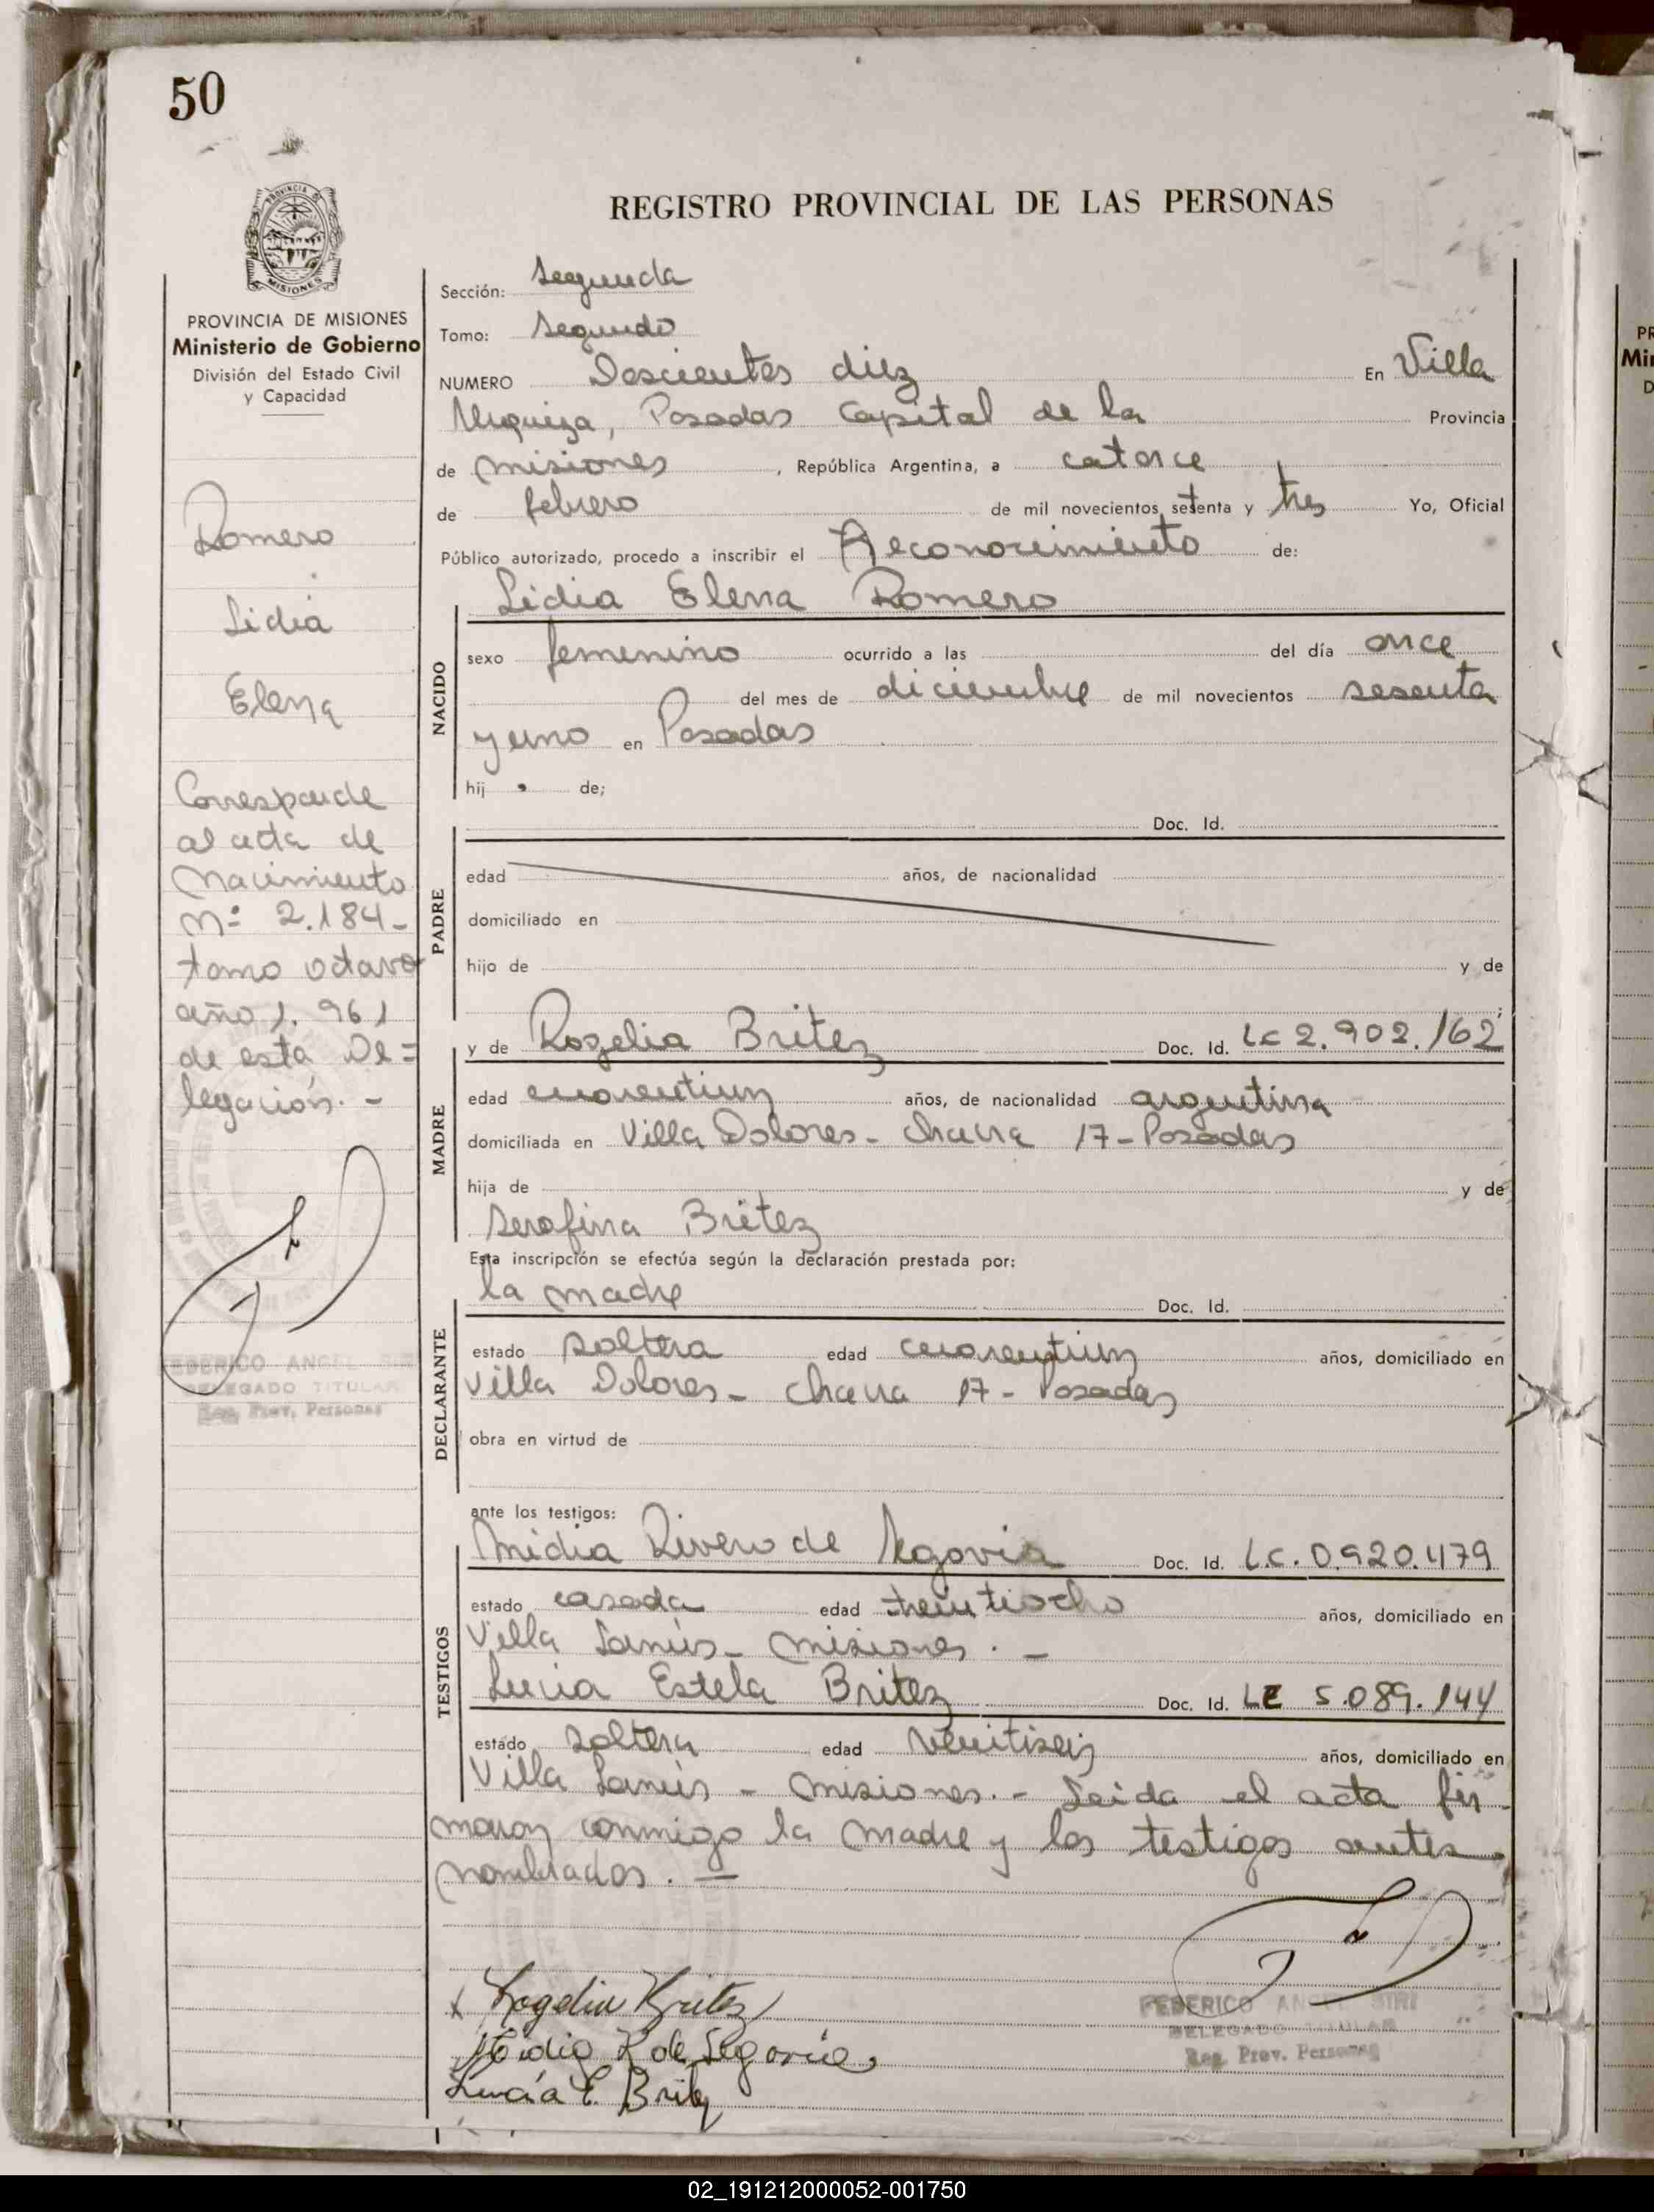 50
REGISTRO PROVINCIAL DE LAS PERSONAS
PROVINCIA
MISIONES
PROVINCIA DE MISIONES
Ministerio de Gobierno
División del Estado Civil
y Capacidad
Romero
Lidia
Elena
Corresponde
al acta de
Nacimiento
Nº: 2.184-
tomo octavo
año 1.961
de esta De=
legación. -
FEDERICO ANGEL SIRI
DELEGADO TITULAR
Reg. Prov. Personas
Sección: Segunda
Tomo: Segundo
NUMERO Doscientos diez En Villa
Urquiza, Posadas Capital de la Provincia
de Misiones, República Argentina, a catorce
de febrero de mil novecientos setenta y tres Yo, Oficial
Público autorizado, procedo a inscribir el Reconocimiento de:
Lidia Elena Romero
NACIDO
sexo femenino ocurrido a las del día once
del mes de diciembre de mil novecientos sesenta
y uno en Posadas
hij de;
Doc. Id.
PADRE
edad años, de nacionalidad
domiciliado en
hijo de y de
MADRE
y de Rogelia Britez Doc. Id. LC 2.902.162
edad cuarentiun años, de nacionalidad argentina
domiciliada en Villa Dolores - Chacra 17 - Posadas
hija de y de
Serafina Britez
Esta inscripción se efectúa según la declaración prestada por:
la madre Doc. Id.
DECLARANTE
estado soltera edad cuarentiun años, domiciliado en
Villa Dolores - Chacra 17 - Posadas
obra en virtud de
ante los testigos:
TESTIGOS
Nidia Rivero de Segovia Doc. Id. L.C. 0.920.479
estado casada edad treintiocho años, domiciliado en
Villa Lanús - Misiones. -
Lucia Estela Britez Doc. Id. LE 5.089.144
estado soltera edad veintiseis años, domiciliado en
Villa Lanús - Misiones. - Leida el acta fir
maron conmigo la madre y los testigos antes
nombrados. -
x Rogelia Britez
Nidia R de Segovia
Lucía E. Britez
FEDERICO ANGEL SIRI
DELEGADO TITULAR
Reg. Prov. Personas
02_191212000052-001750